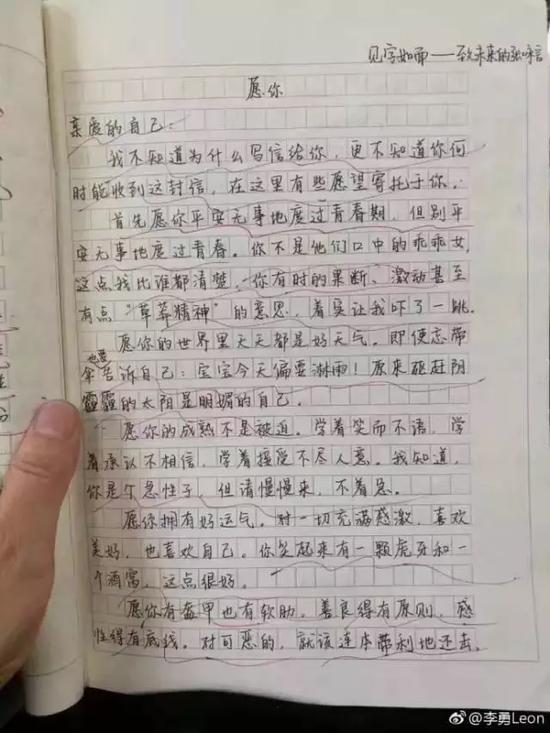 见字如面——致未来的张咏言
愿你
亲爱的自己：
我不知道为什么写信给你，更不知道你何
时能收到这封信，在这里有些愿望寄托于你，
首先愿你平安无事地度过青春期，但别平
安无事地度过青春。你不是他们口中的乖乖女，
这点我比谁都清楚，你有时的果断、激动甚至
有点“草莽精神”的意思，着实让我吓了一跳。
愿你的世界里天天都是好天气。即使忘带
伞也要告诉自己：宝宝今天偏要淋雨！原来驱赶阴
霾的太阳是明媚的自己。
愿你的成熟不是被迫。学着笑而不语，学
着承认不相信，学着接受不尽人意。我知道，
你是个急性子，但请慢慢来，不着急。
愿你拥有好运气。对一切充满感激，喜欢
美好，也喜欢自己。你笑起来有一颗虎牙和一
个酒窝，这点很好。
愿你有盔甲也有软肋。善良得有原则，感
性得有底线。对可恶的，就该连本带利地还击。
@李勇Leon